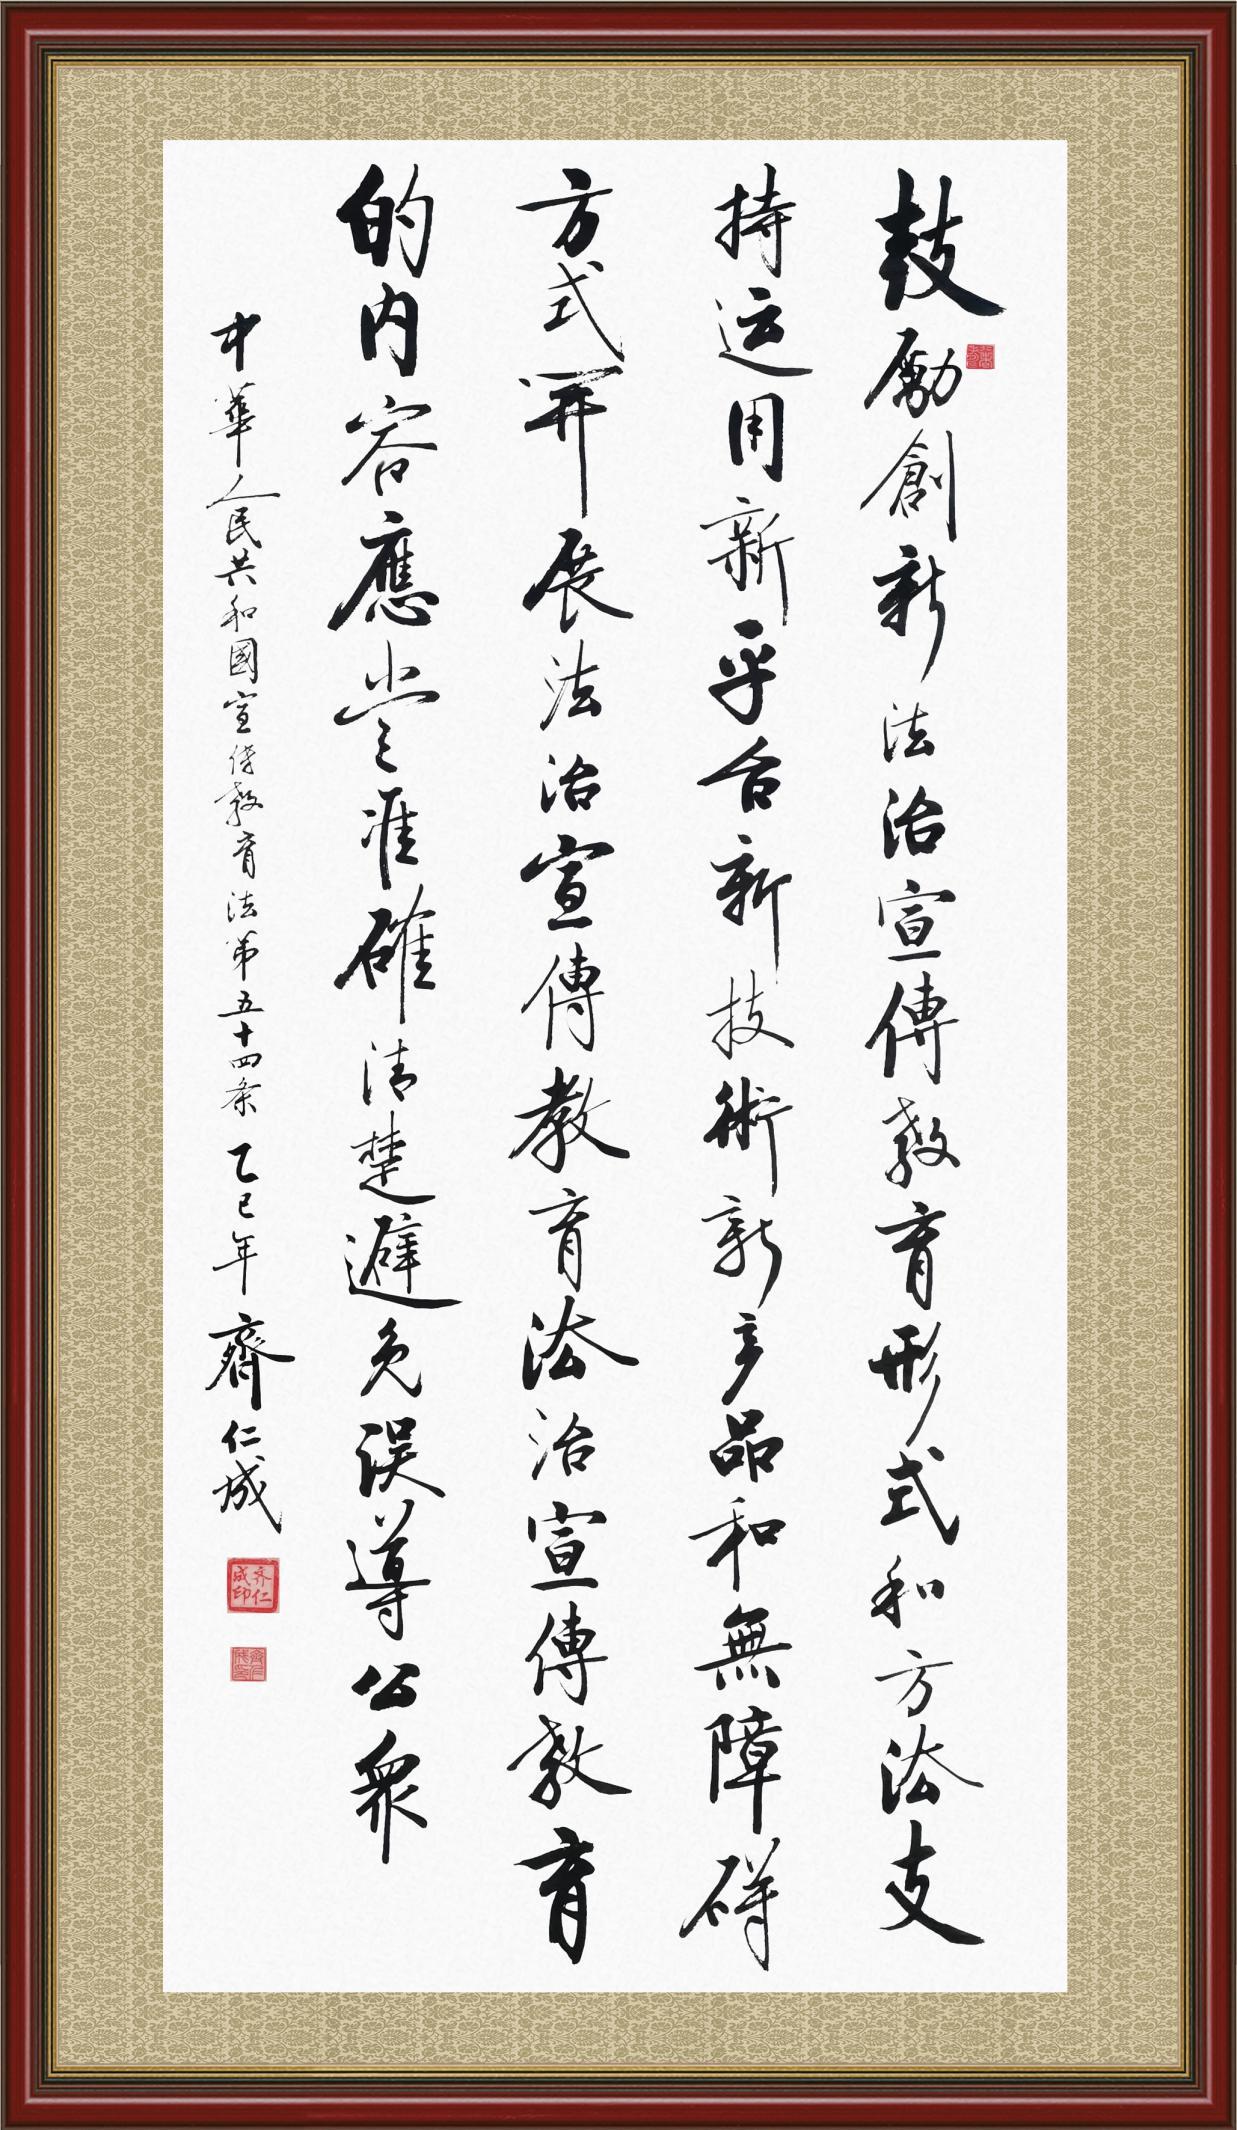 鼓勵創新法治宣傳教育形式和方法支
持运用新平台新技術新产品和無障碍
方式開展法治宣傳教育法治宣傳教育
的内容應當准確清楚避免误導公衆
中華人民共和國宣传教育法第五十四条乙巳年齊仁成
齐仁成印